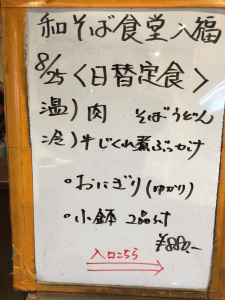 和そば食堂 八福
8/25 〈日替定食〉
温) 肉 そばうどん
冷) 牛しぐれ煮ぶっかけ
・おにぎり(ゆかり)
・小鉢 2品付
¥880.-
入口こちら